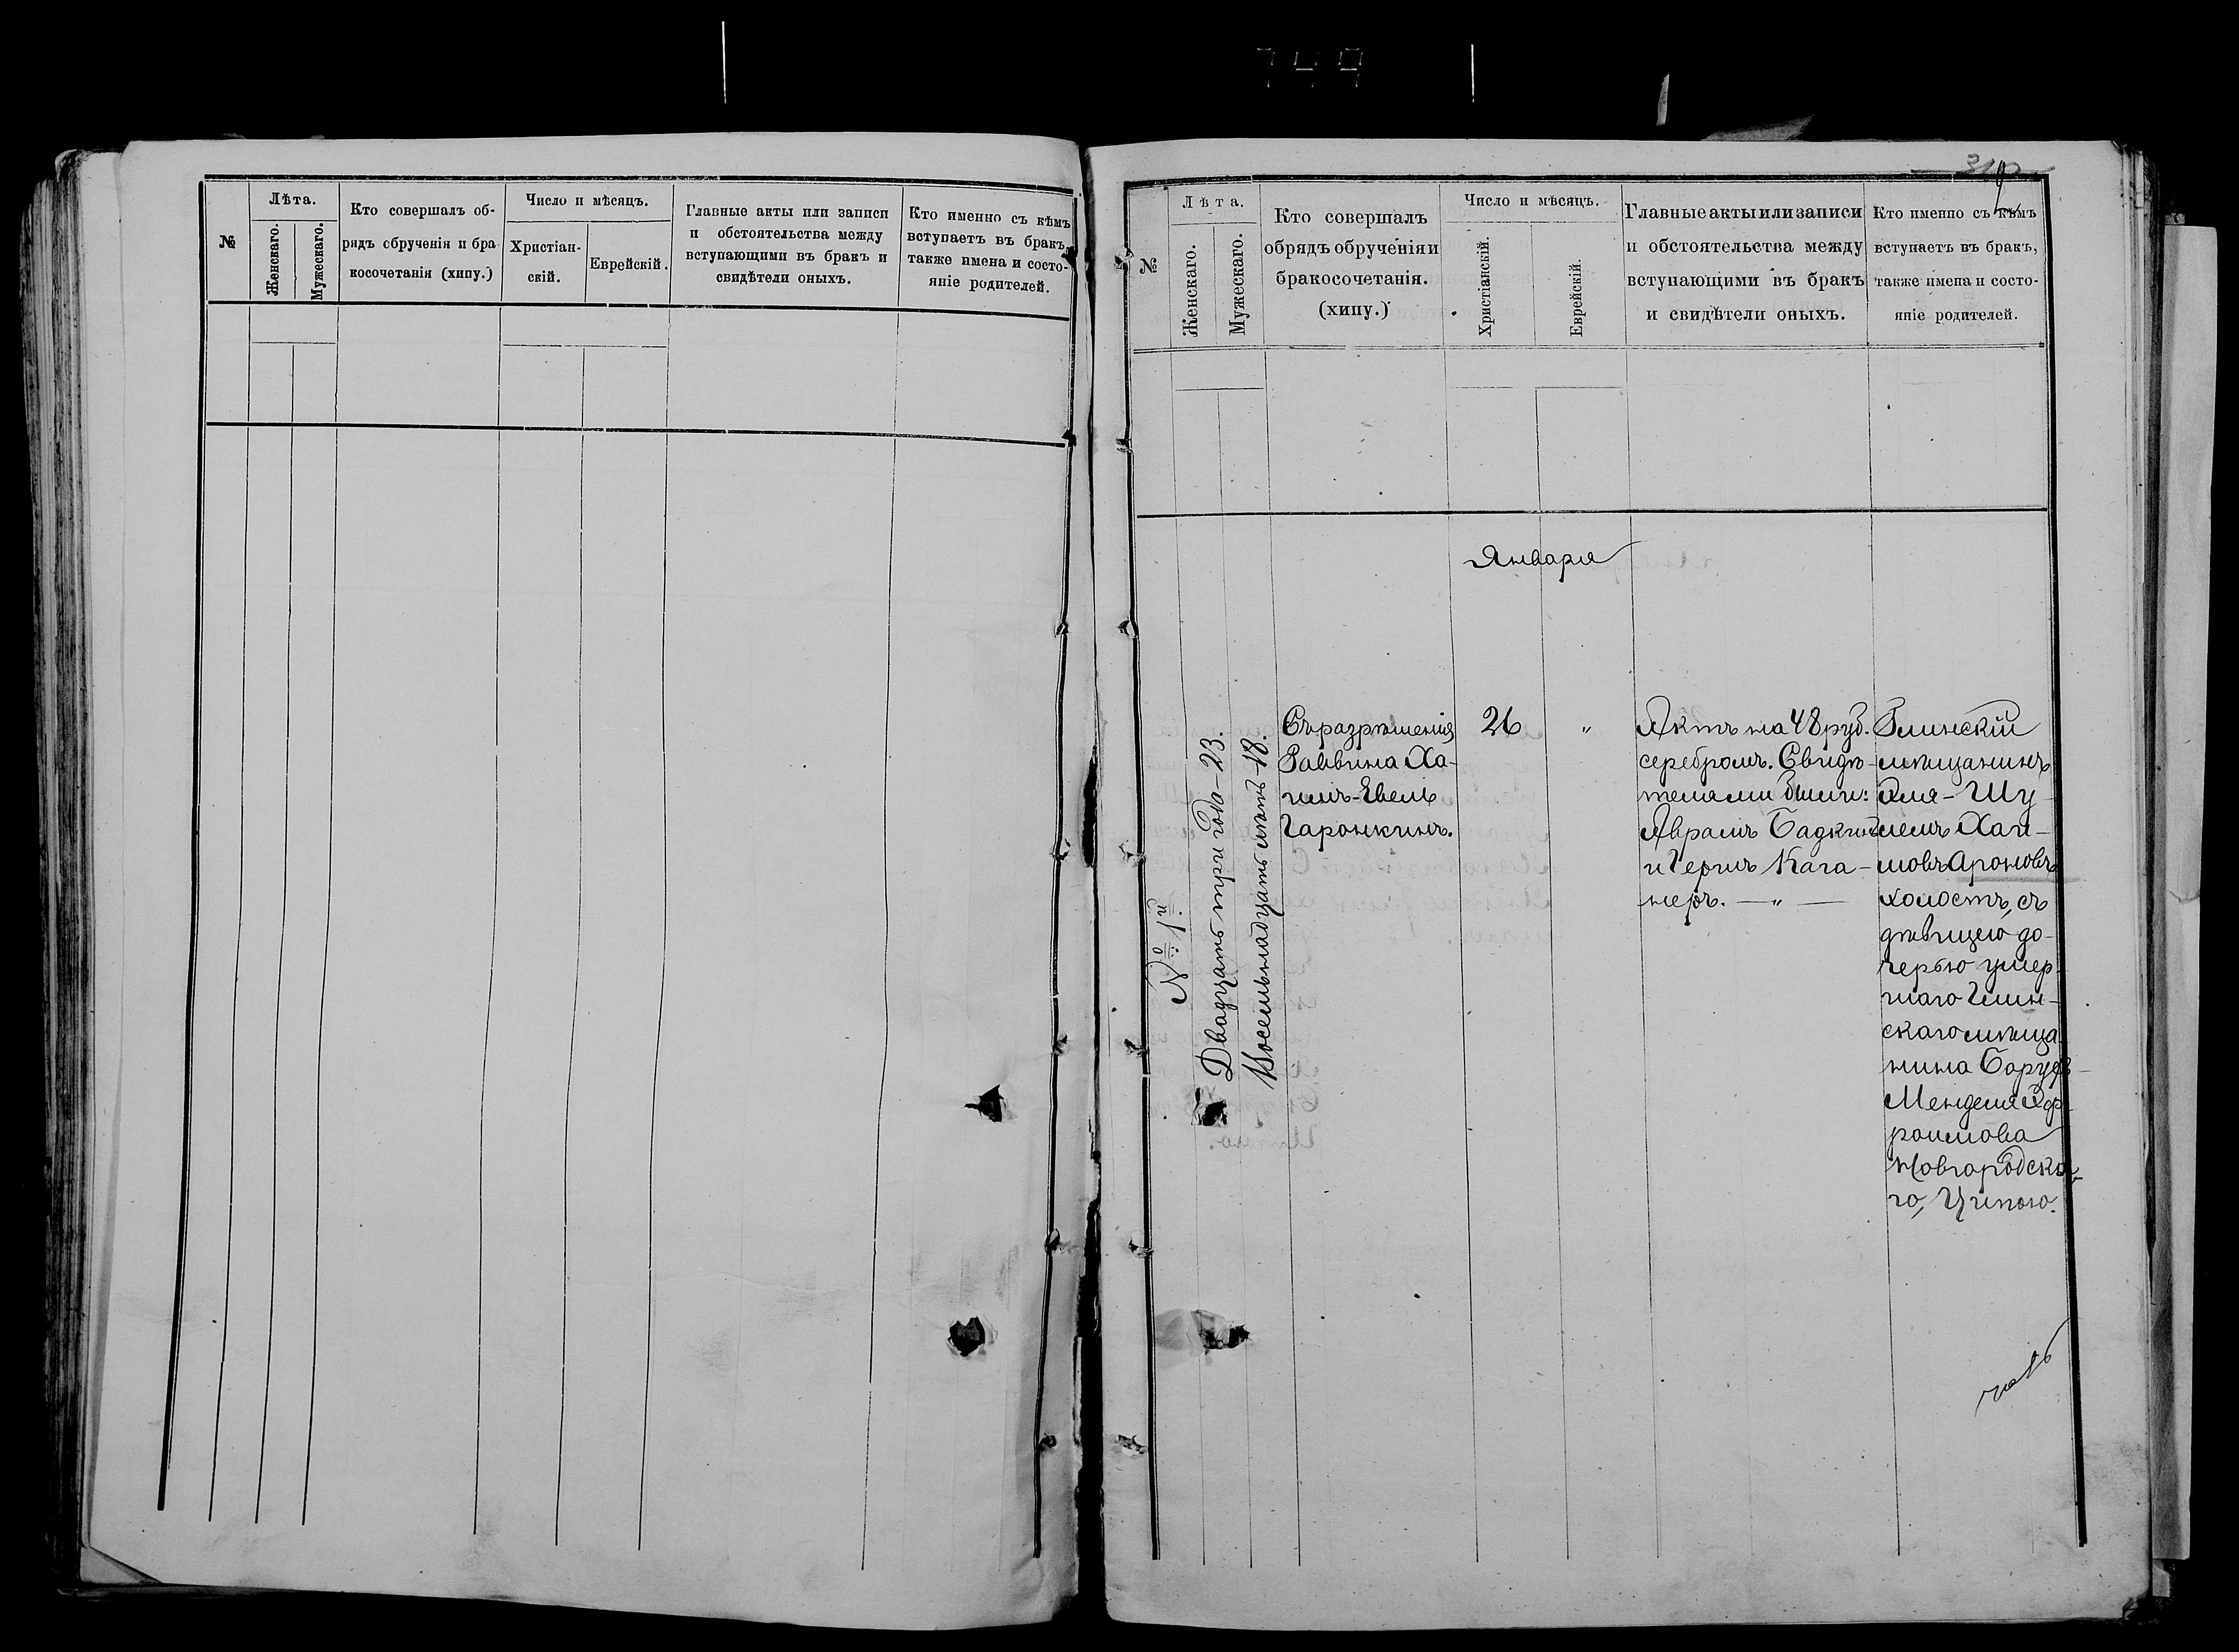 749
№
Лѣта.
Женскаго.
Мужескаго.
Кто совершалъ об-
рядъ обрученія и бра
косочетанія (хипу.)
Число и мѣсяцъ.
Христіан-
скій.
Еврейскій.
Главные акты или записи
и обстоятельства между
вступающими въ бракъ и
свидѣтели оныхъ.
Кто именно съ кѣмъ
вступаетъ въ бракъ,
также имена и состо-
яніе родителей.
№
Лѣта.
Женскаго.
Мужескаго.
Кто совершалъ
обрядъ обрученія и
бракосочетанія.
(хипу.)
Число и мѣсяцъ.
Христіанскій.
Еврейскій.
Главные акты или записи
и обстоятельства между
вступающими въ бракъ
и свидѣтели оныхъ.
Кто именно съ кѣмъ
вступаетъ въ бракъ,
также имена и состо-
яніе родителей.
Января
№ 1
Двадцать три года - 23.
Восемьнадцать лѣтъ - 18.
Съ разрѣшенія
Раввина Ха-
имъ-Евель
Гаронкинъ.
26
"
Актъ на 48 руб.
серебромъ. Свидѣ-
телями были:
Аврамъ Бадкинъ
и Герцъ Кага-
неръ. — " —
Глинскій
мѣщанинъ
Шу-
лемъ Хаи-
мовъ Ароновъ
холостъ, съ
дѣвицею до-
черью умер-
шаго Глин-
скаго мѣща
нина Борухъ-
Менделя Эф-
роимова
Новгородска-
го, Ципою.